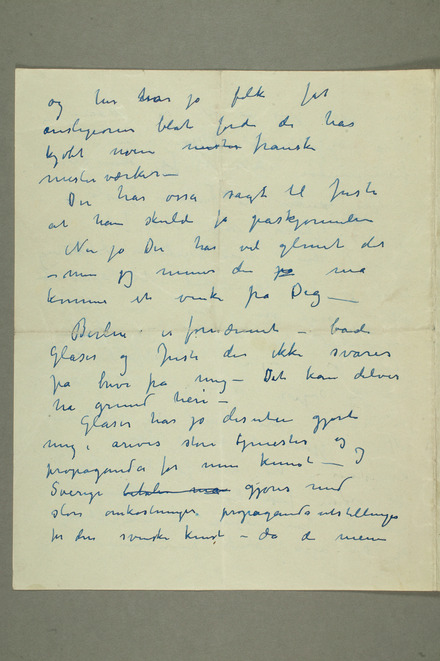 og her har jo folk fåt
ansigterne blot fordi de har
kjøbt noen mester franske
mesterværker –
Du har ossa sagt til Justi
at han skulde få paskjormelen
Nei jo Du har vel glemt det
– men jeg mener du må
komme et vink fra Dig –
Berlin er fornærmet – både
Glaser og Justi der ikke svarer
på breve fra mig – Det kan delvis
ha grund heri –
Glaser har jo desuten gjort
mig i årevis store tjenester og
propaganda for min kunst – og
Sverige betaler man gjøres med
store omkostninger propaganda utstillinger
for den svenske kunst – da de mener